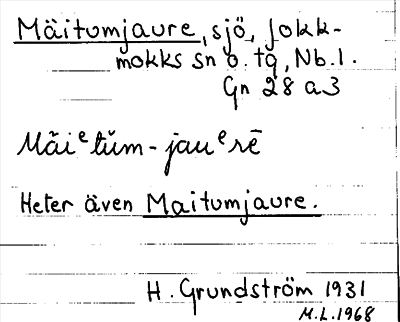 Mäitumjaure, sjö, Jokk-
mokks sn o. tg, Nb. l.
Gn 28 a3
Mǟiᵉtŭm-jauᵉrē
Heter även Maitumjaure.
H. Grundström 1931
M.L. 1968